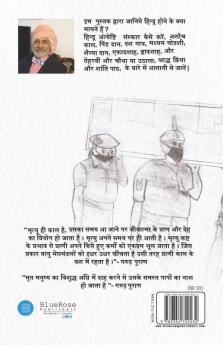 इस पुस्तक द्वारा जानिये हिन्दू होने के क्या
मायने हैं?
हिन्दू अंत्येष्टि संस्कार कैसे करें, अशौच
काल, पिंड दान, दश गात्र, मध्यम षोडशी,
शैय्या दान, एकादशाह, द्वादशाह, और
तेहरवीं और चौथा या उठाला, श्राद्ध क्रिया
और शांति पाठ, के बारे में आसानी से जानें|
"मृत्यु ही काल है, उसका समय आ जाने पर जीवात्मा के प्राण और देह
का वियोग हो जाता है। मृत्यु अपने समय पर ही आती है। मृत्यु कष्ट
के प्रभाव से प्राणी अपने किये हुए कर्मों को एकदम भूल जाता है। जिस
प्रकार वायु मेघमंडलों को इधर उधर खींचता है उसी तरह प्राणी काल के
वश में रहता है।"- गरुड़ पुराण
"मृत मनुष्य का विशुद्ध अग्नि में दाह करने से उसके समस्त पापों का नाश
हो जाता है "- गरुड़ पुराण
BlueRose
Publishers
NON-FICTION
INR 300